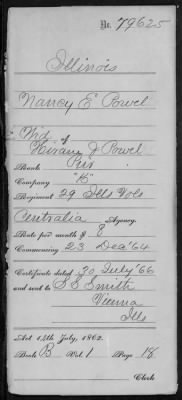 No. 79625
Illinois
Nancy E Powel
Wid. of
Hiram J Powel
Rank Pri
Company "K"
Regiment 29 Ills Vols
Centralia Agency.
Rate per month $ 8
Commencing 23 Dec '64
Certificate dated 30 July '66
and sent to S E Smith
Vienna
Ills
Act 14th July, 1862.
Book B Vol. 1 Page 18
Clerk